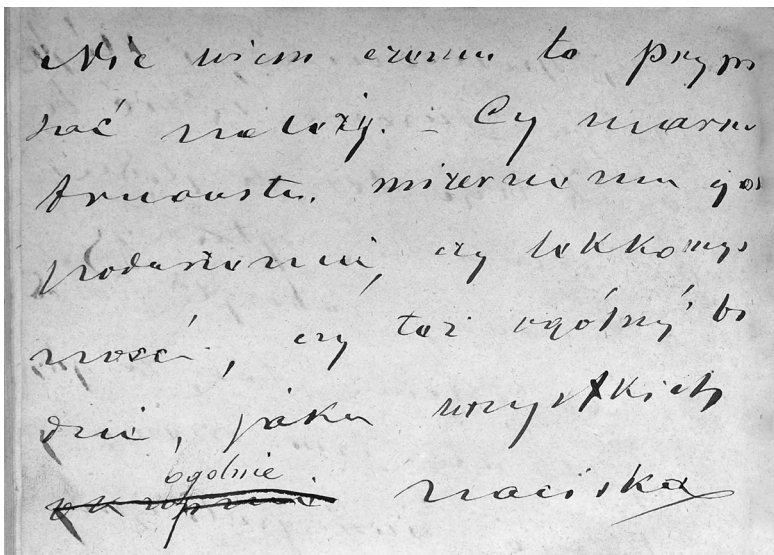 Nie wiem czemu to przypi
sać należy. – Czy marno
trawstwu, mizernemu gos
podarzeniu, czy lekkomyśl
ności, czy też ogólnej bi
dzie, jaka wszystkich
ogólnie
naciska